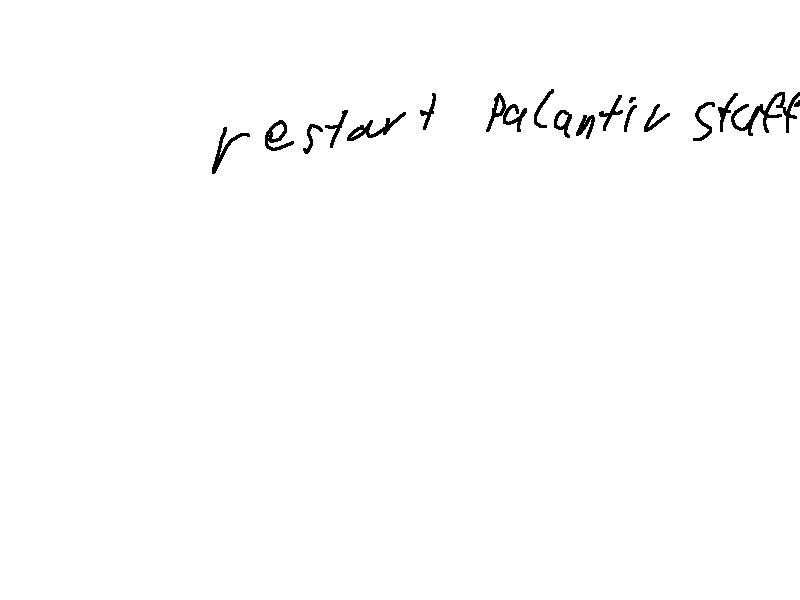 restart Palantir stuff